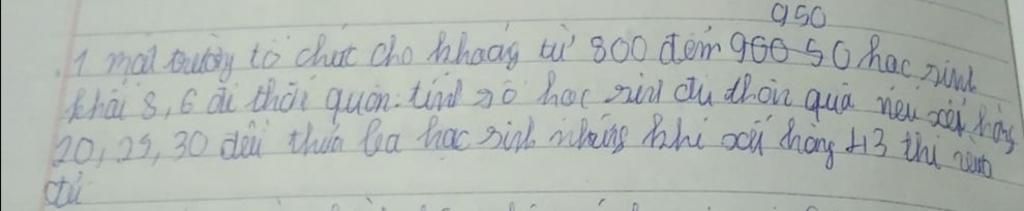 950
1 một trường tổ chức cho khoảng từ 800 đến 900 50 học sinh
khối 8, 6 đi thăm quan. tính số học sinh đi thăm quan nếu xếp hàng
20, 25, 30 đều thừa ba học sinh nhưng khi xếp hàng 43 thì vừa
đủ